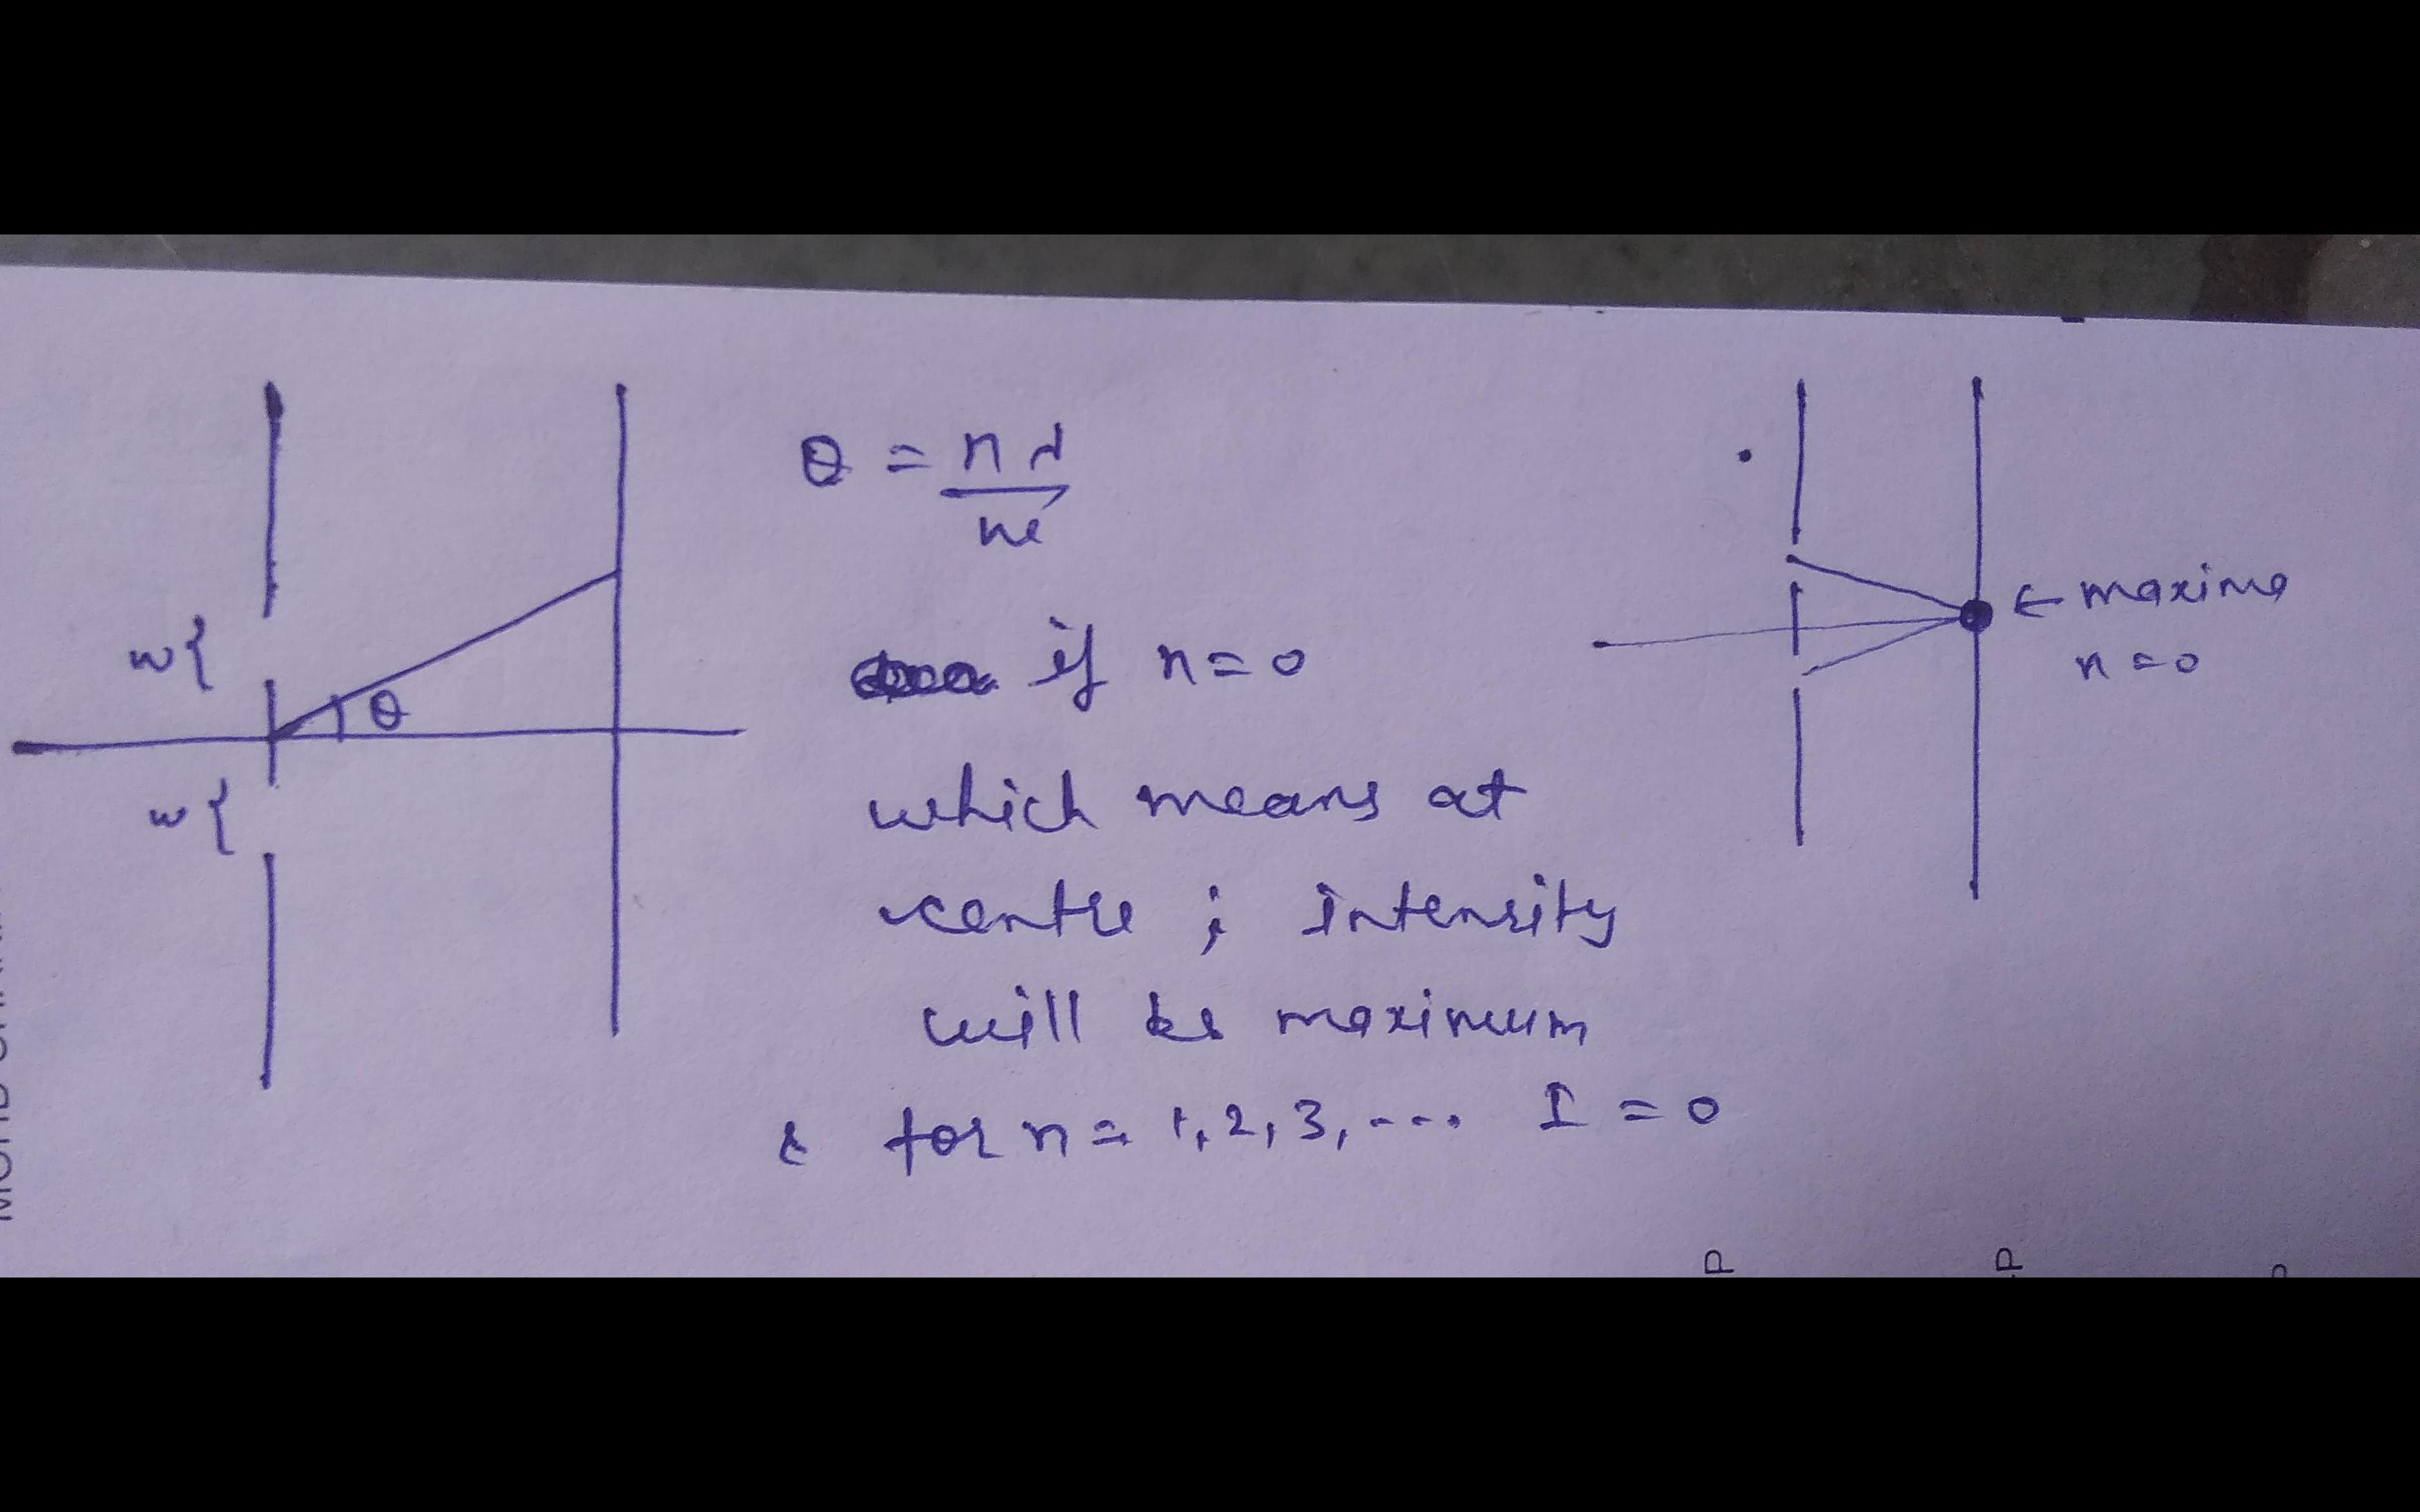 θ = nλ
w
if n = 0
which means at
centre ; intensity
will be maximum
& for n = 1, 2, 3, .... I = 0
w{
θ
w{
← maxima
n = 0
P
P